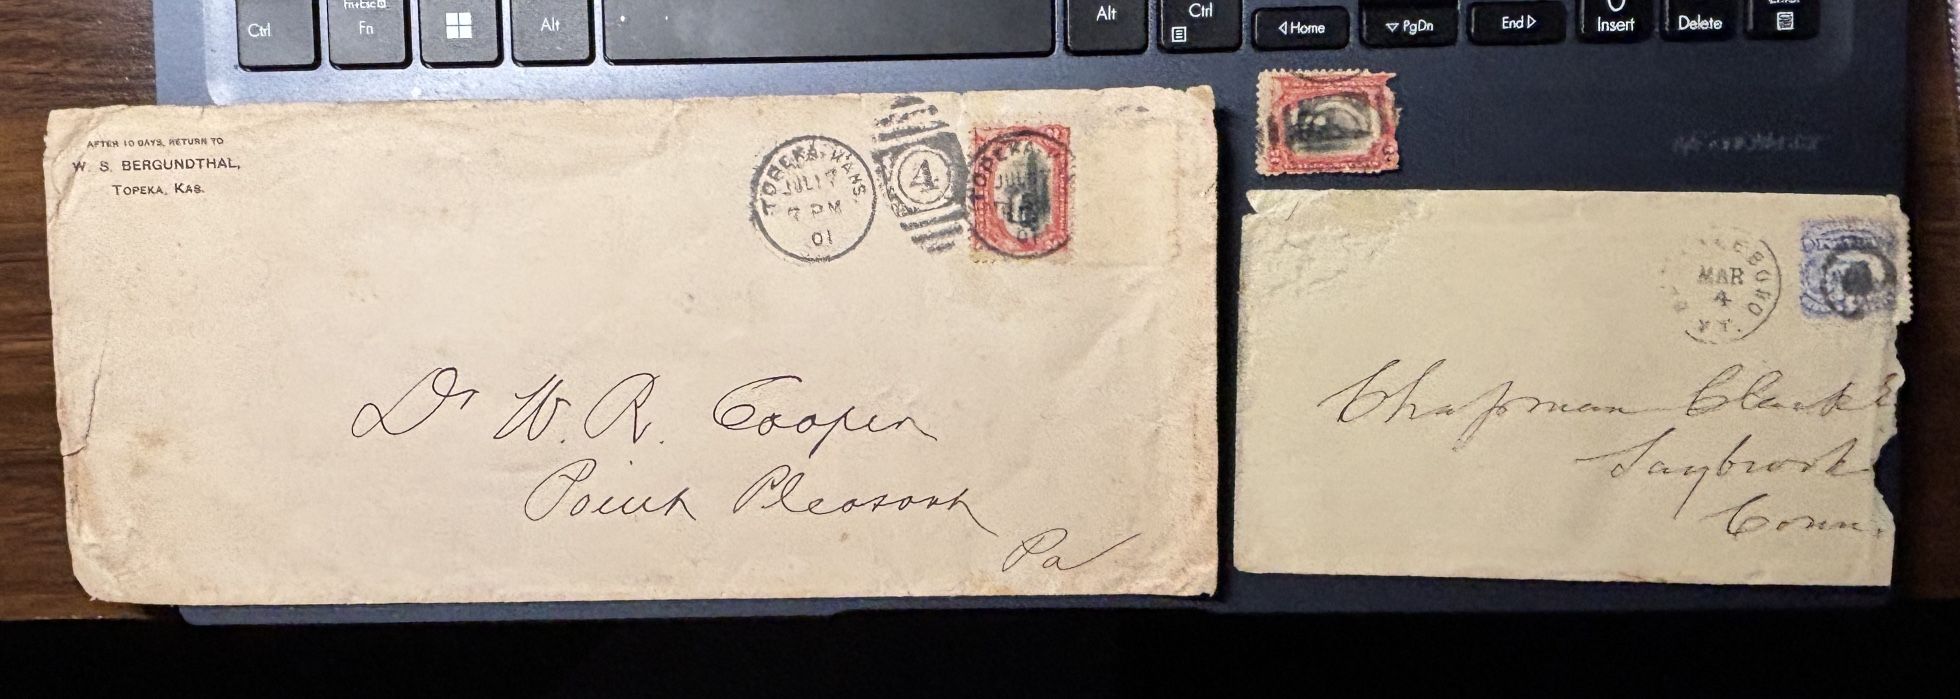 Ctrl
Fn+Esc
Fn
Alt
Alt
Ctrl
Home
PgDn
End
Insert
Delete
AFTER 10 DAYS, RETURN TO
W. S. BERGUNDTHAL,
TOPEKA, KAS.
TOPEKA, KANS.
JUL 17
7 PM
01
4
TOPEKA
JUL 17
01
2
2
Dr W. R. Cooper
Point Pleasant
Pa
MAR
4
VT.
Chapman Clark
Saybrook
Conn.